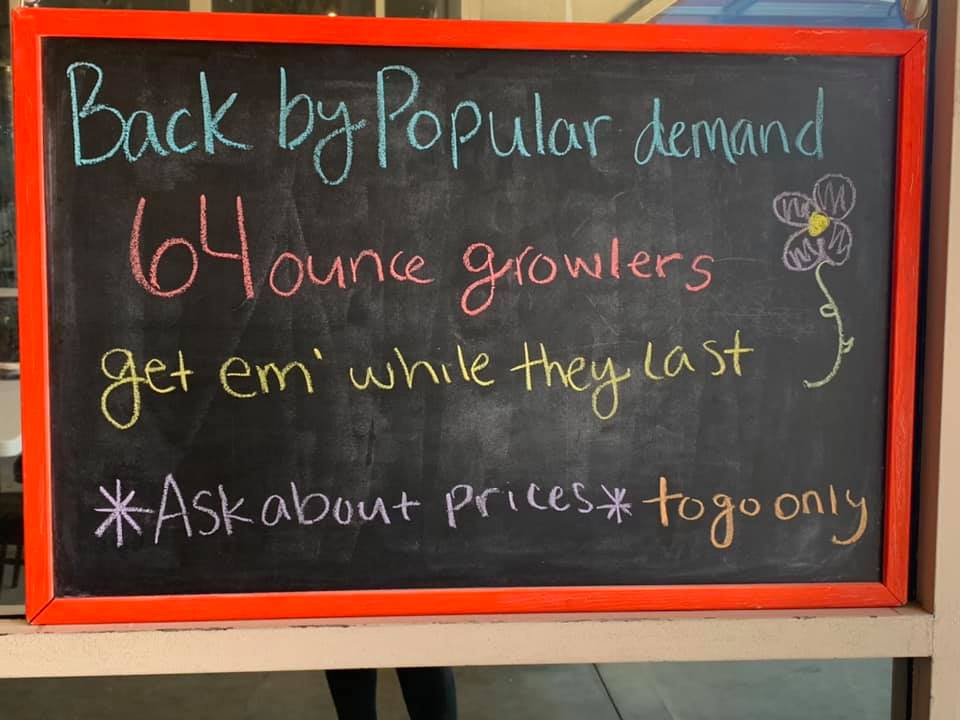 Back by Popular demand
64 ounce growlers
get em' while they last
*Ask about prices* to go only